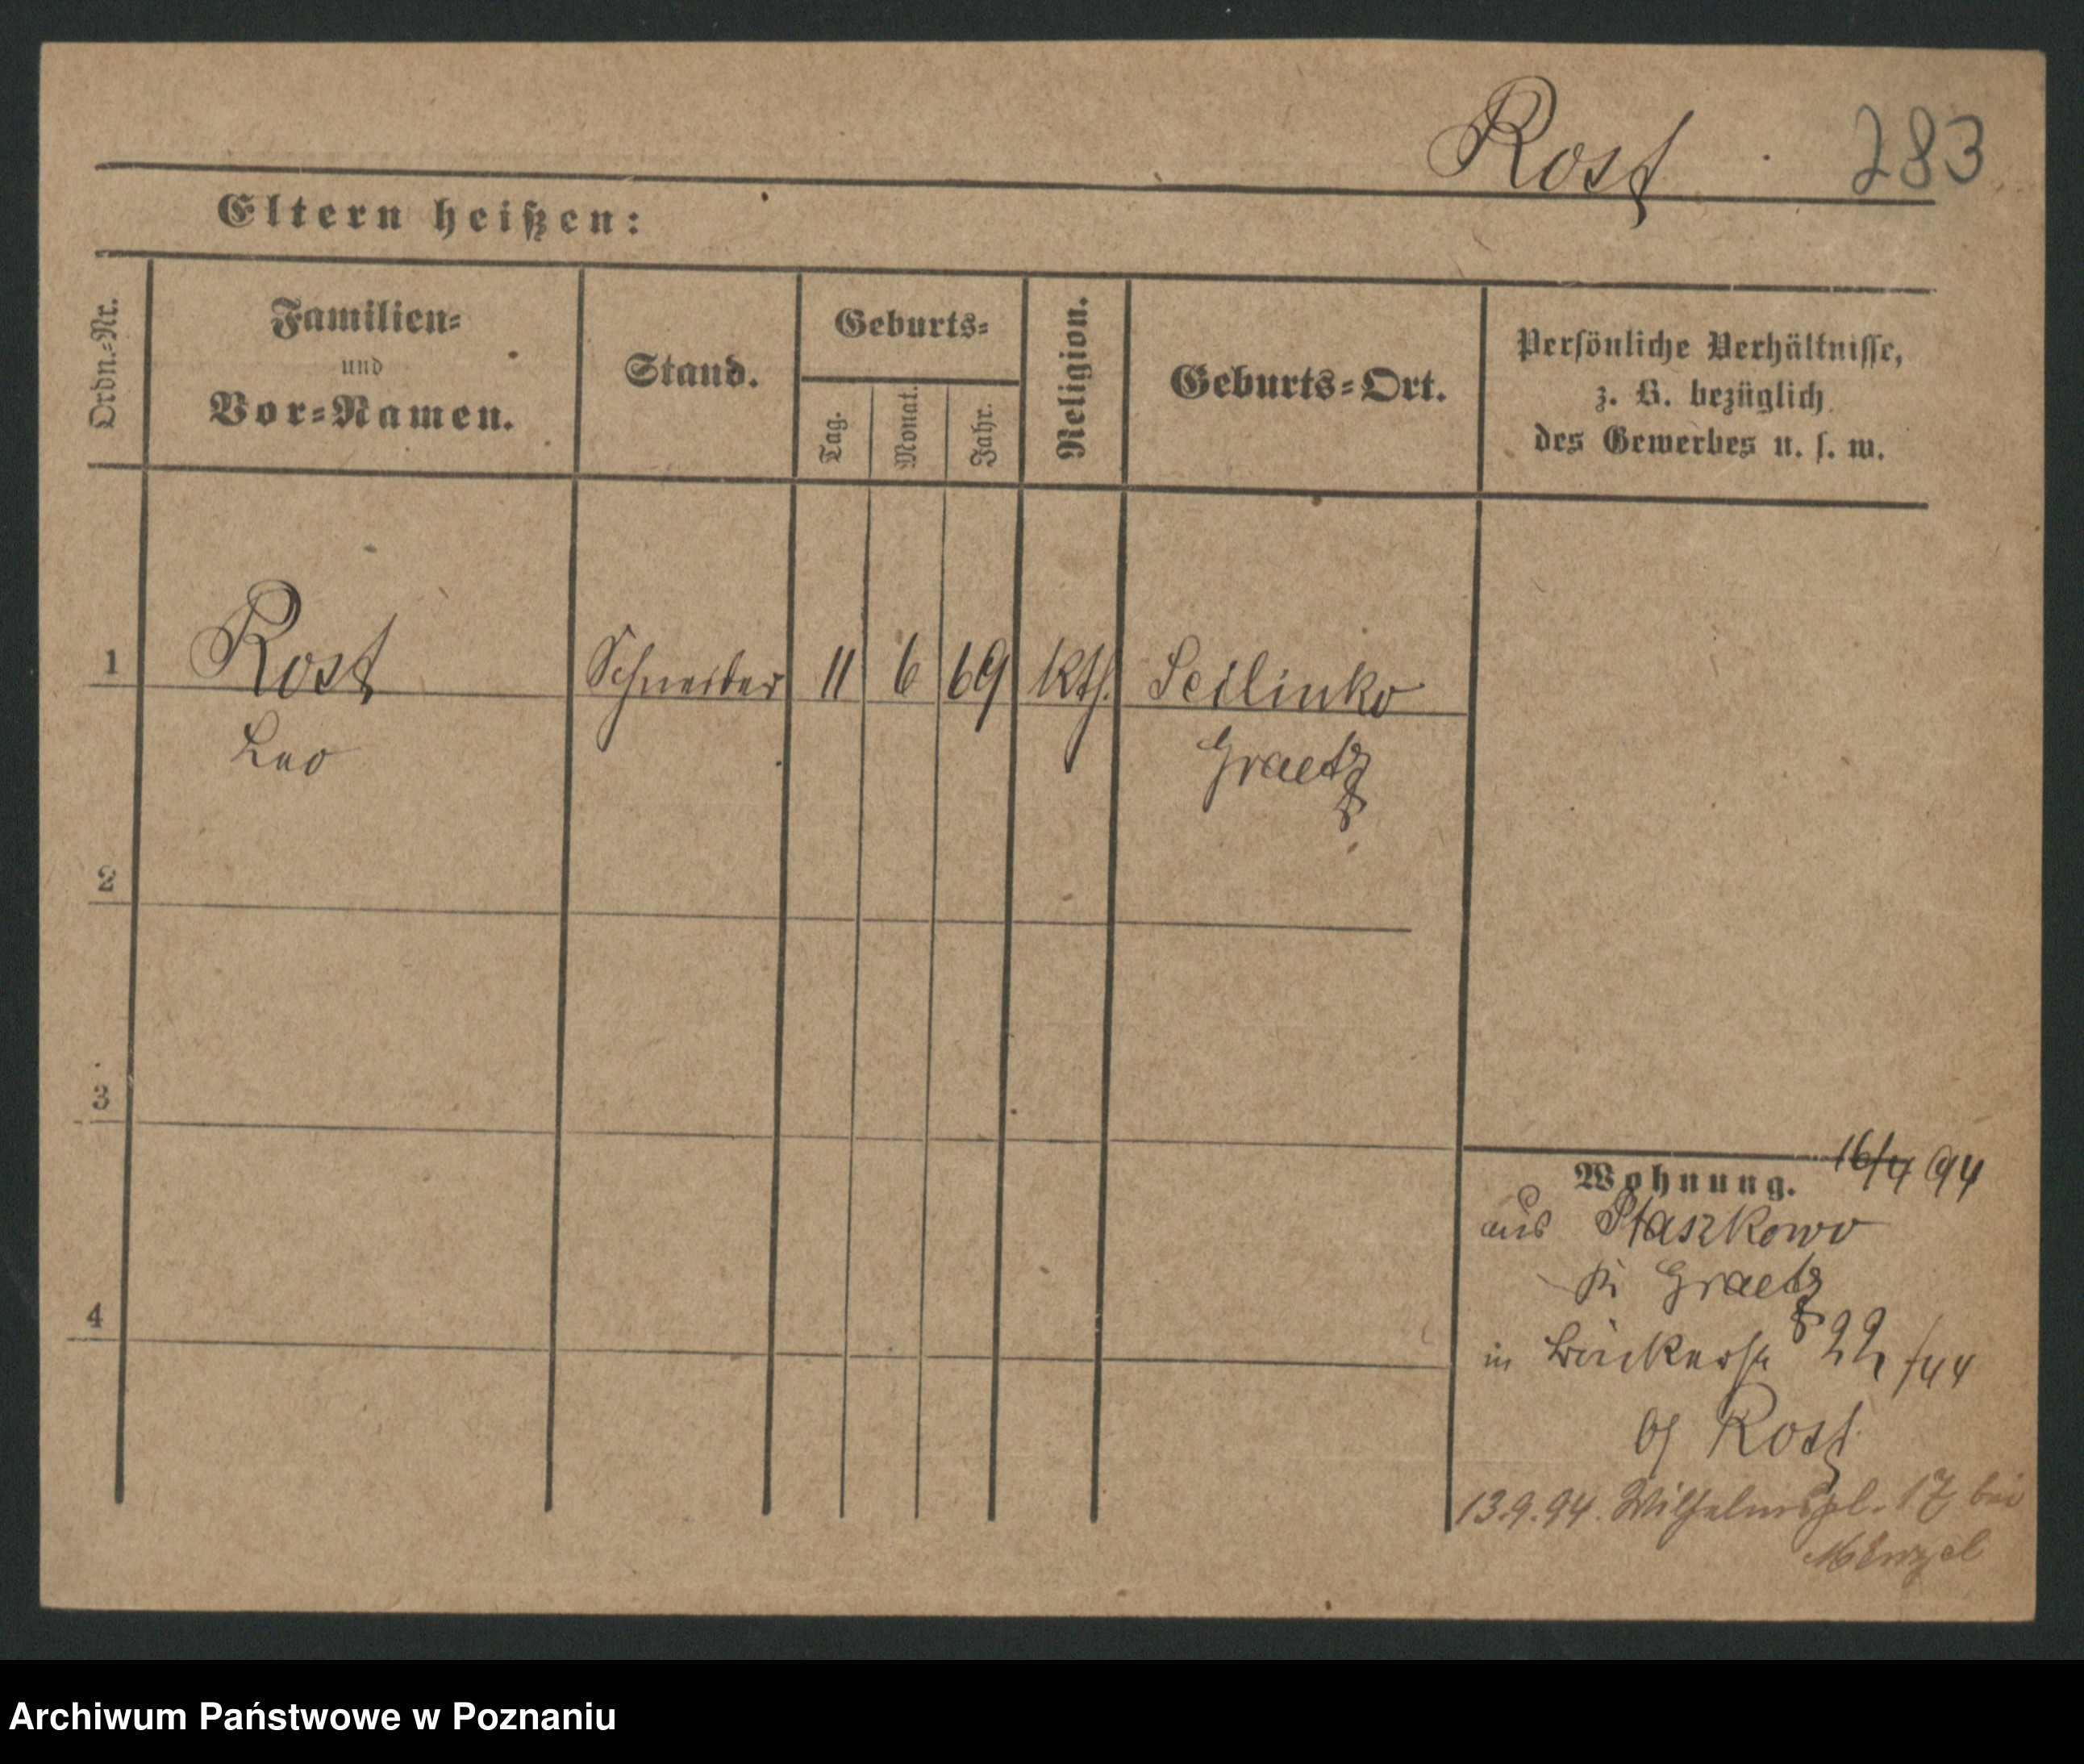 Rost 283
Eltern heißen:
Ordn.-Nr.
Familien-
und
Vor-Namen.
Stand.
Geburts-
Tag.
Monat.
Jahr.
Religion.
Geburts-Ort.
Persönliche Verhältnisse,
z. B. bezüglich
des Gewerbes u. s. w.
1 Rost Schneider 11 6 69 kth. Seilinko
Leo Graetz
2
3
4
Wohnung. 16/4 94
aus Ptaszkowo
Graetz
in Bäckerstr 22 /44
Rost
13.9.94. Wilhelmspl. 17 bei
Menzel
Archiwum Państwowe w Poznaniu